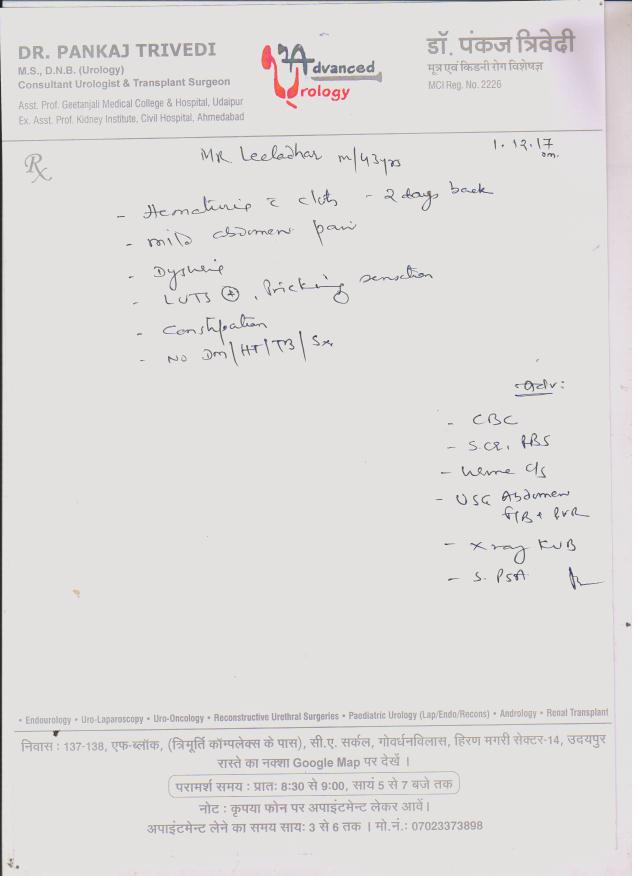 DR. PANKAJ TRIVEDI
M.S., D.N.B. (Urology)
Consultant Urologist & Transplant Surgeon
Asst. Prof. Geetanjali Medical College & Hospital, Udaipur
Ex. Asst. Prof. Kidney Institute, Civil Hospital, Ahmedabad
Advanced
Urology
डॉ. पंकज त्रिवेदी
मूत्र एवं किडनी रोग विशेषज्ञ
MCI Reg. No. 2226
Rx
MR Leeladhar m/43yrs
1.12.17
- Hematuria c̄ clots - 2 days back
- mild abdomen pain
- Dysuria
- LUTS ⊕, Pricking sensation
- Constipation
- No Dm/HT/TB/Sx
Adv:
- CBC
- S.CR, RBS
- Urine C/S
- USG Abdomen
+ PVR
- X ray KUB
- S. PSA
• Endourology • Uro-Laparoscopy • Uro-Oncology • Reconstructive Urethral Surgeries • Paediatric Urology (Lap/Endo/Recons) • Andrology • Renal Transplant
निवास : 137-138, एफ-ब्लॉक, (त्रिमूर्ति कॉम्पलेक्स के पास), सी.ए. सर्कल, गोवर्धनविलास, हिरण मगरी सेक्टर-14, उदयपुर
रास्ते का नक्शा Google Map पर देखें ।
परामर्श समय : प्रातः 8:30 से 9:00, सायं 5 से 7 बजे तक
नोट : कृपया फोन पर अपाइंटमेन्ट लेकर आवें।
अपाइंटमेन्ट लेने का समय सायः 3 से 6 तक । मो.नं.: 07023373898